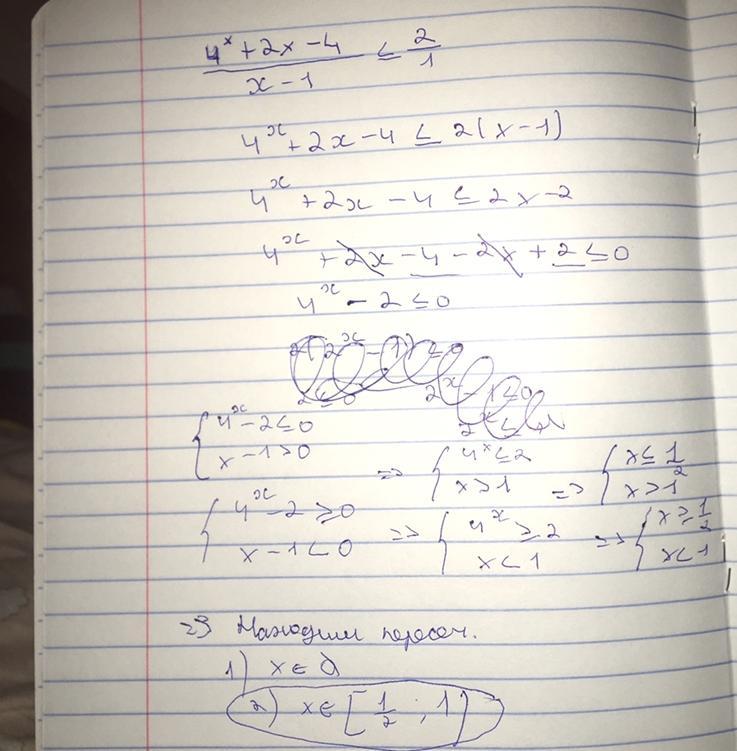 4^x + 2x - 4 / x - 1 ≤ 2/1
4^x + 2x - 4 ≤ 2(x - 1)
4^x + 2x - 4 ≤ 2x - 2
4^x + 2x - 4 - 2x + 2 ≤ 0
4^x - 2 ≤ 0
{ 4^x - 2 ≤ 0
x - 1 > 0 => { 4^x ≤ 2
x > 1 => { x ≤ 1/2
x > 1
{ 4^x - 2 ≥ 0
x - 1 < 0 => { 4^x ≥ 2
x < 1 => { x ≥ 1/2
x < 1
=> Находим пересеч.
1) x ∈ ∅
2) x ∈ [1/2 ; 1]